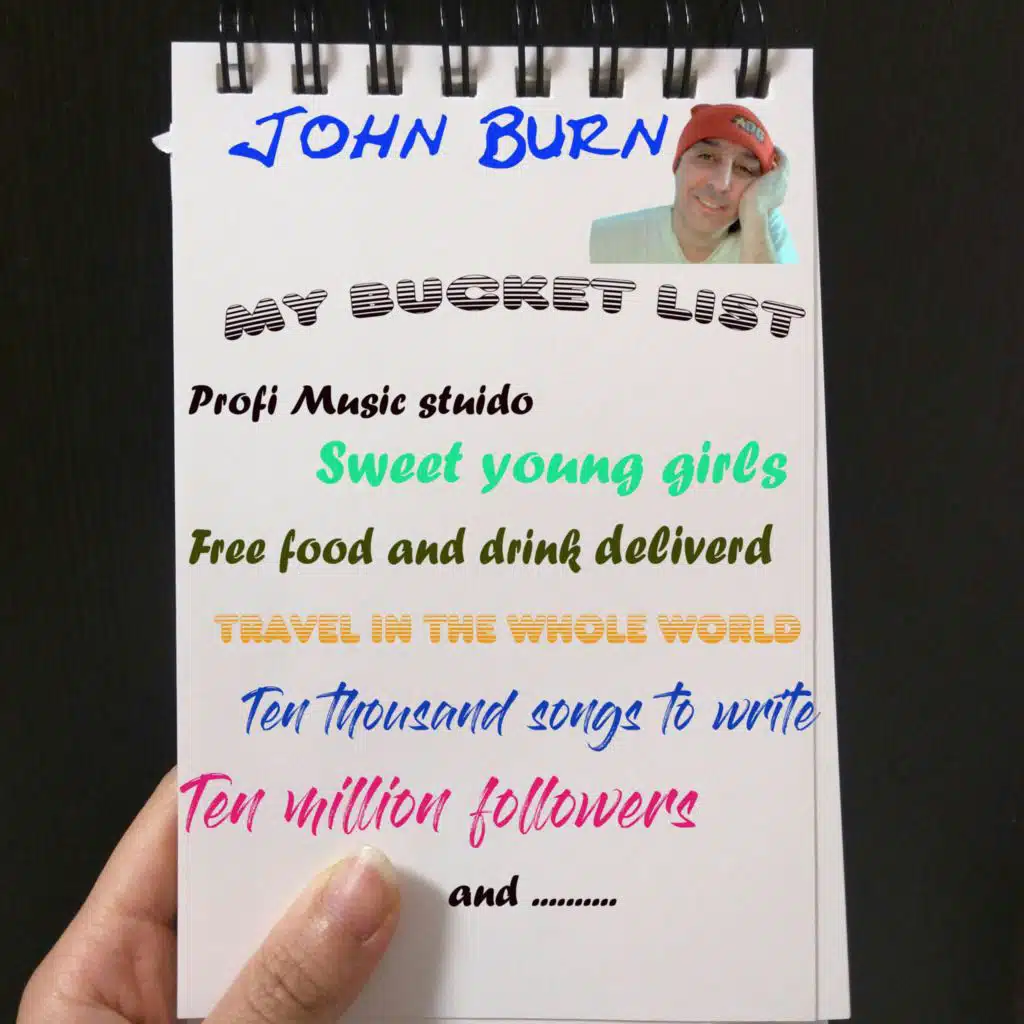 JOHN BURN
MY BUCKET LIST
Profi Music stuido
Sweet young girls
Free food and drink deliverd
TRAVEL IN THE WHOLE WORLD
Ten thousand songs to write
Ten million followers
and ..........